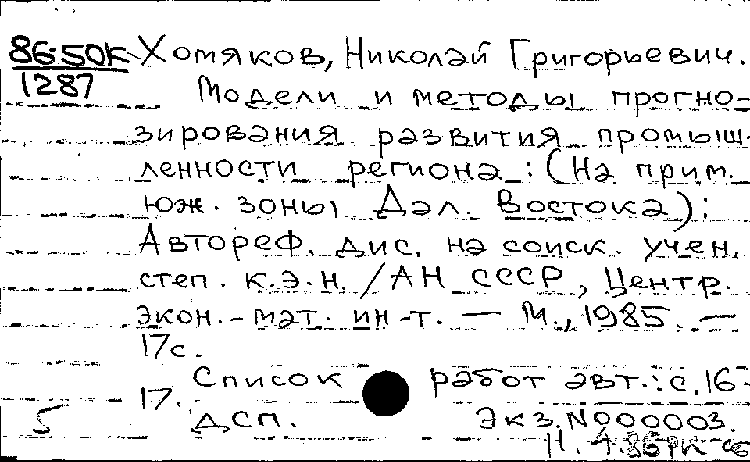 86-50K Хомяков, Николай Григорьевич.
1287 Модели и методы прогно-
зирования развития промыш-
ленности региона: (На прим.
юж. зоны Дал. Востока):
Автореф. дис. на соиск. учен.
степ. к.э.н. / АН СССР, Центр.
экон.-мат. ин-т. — М., 1985. —
17с.
Список работ авт.: с.16-
17.
5 ДСП. Экз. N000003.
11.4.86